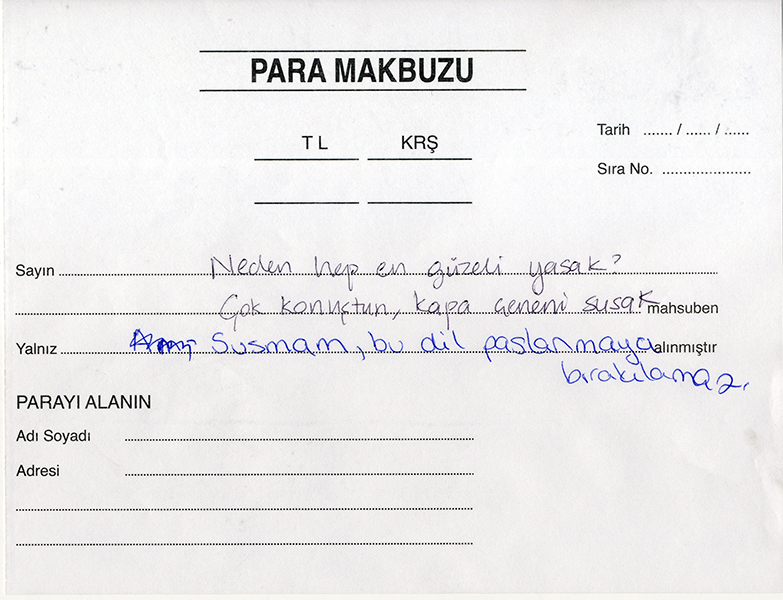 PARA MAKBUZU
TL KRŞ
Tarih ....... / ...... / ......
Sıra No. ......................
Sayın Neden hep en güzeli yasak?
Çok konuştun, kapa çeneni susak mahsuben
Yalnız Susmam, bu dil paslanmaya alınmıştır
bırakılamaz.
PARAYI ALANIN
Adı Soyadı
Adresi